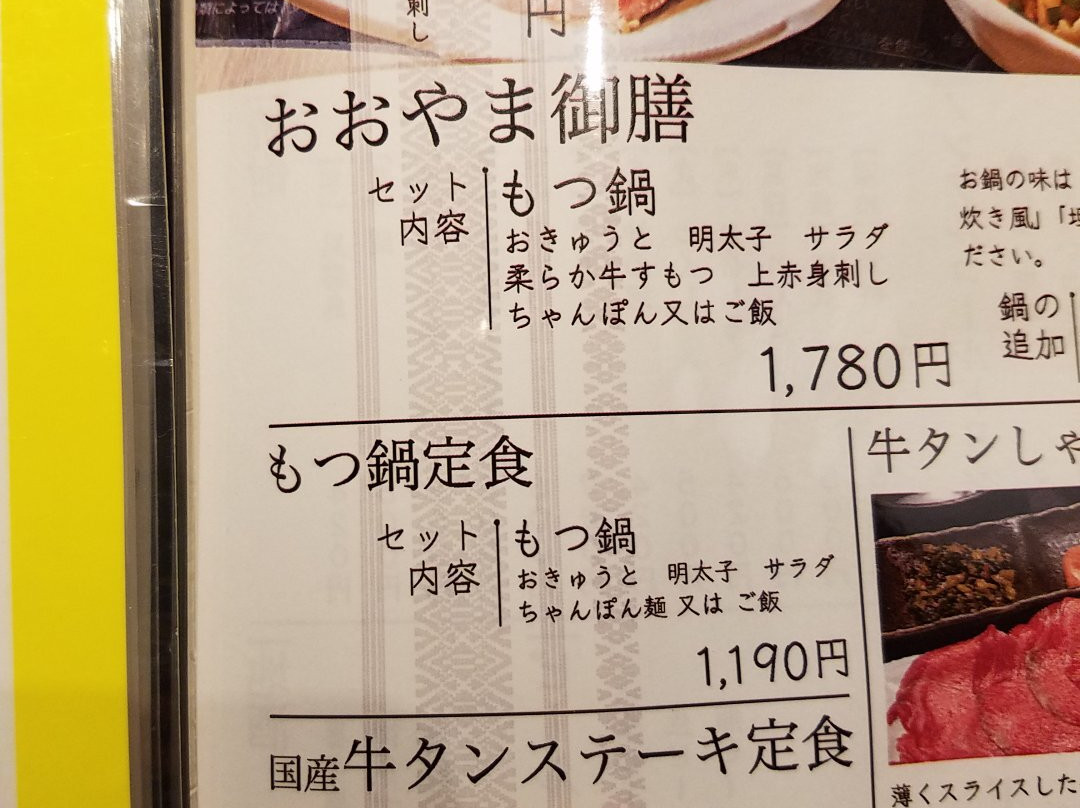 刺し
円
おおやま御膳
セット内容
もつ鍋
おきゅうと 明太子 サラダ
柔らか牛すもつ 上赤身刺し
ちゃんぽん又はご飯
1,780円
お鍋の味は
炊き風」「
ださい。
鍋の
追加
もつ鍋定食
セット内容
もつ鍋
おきゅうと 明太子 サラダ
ちゃんぽん麺 又は ご飯
1,190円
牛タンしゃ
国産牛タンステーキ定食
薄くスライスした